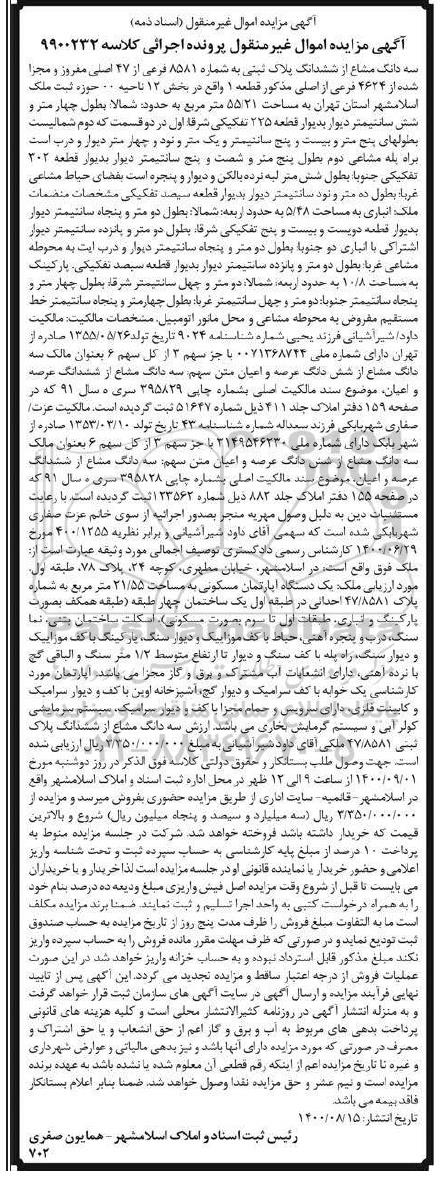 آگهی مزایده اموال غیرمنقول (اسناد ذمه)
آگهی مزایده اموال غیرمنقول پرونده اجرائی کلاسه ۹۹۰۰۲۳۲
سه دانگ مشاع از ششدانگ پلاک ثبتی به شماره ۸۵۸۱ فرعی از ۴۷ اصلی مفروز و مجزا
شده از ۴۶۲۴ فرعی از اصلی مذکور قطعه ۱ واقع در بخش ۱۲ ناحیه ۰۰ حوزه ثبت ملک
اسلامشهر استان تهران به مساحت ۵۵/۲۱ متر مربع به حدود: شمالا: بطول چهار متر و
شش سانتیمتر دیوار بدیوار قطعه ۲۲۵ تفکیکی شرقا: اول در دوقسمت که دوم شمالیست
بطولهای پنج متر و بیست و پنج سانتیمتر و یک متر و نود و چهار متر دیوار و درب است
براه پله مشاعی دوم بطول پنج متر و شصت و پنج سانتیمتر دیوار بدیوار قطعه ۳۰۲
تفکیکی جنوبا: بطول شش متر لبه نرده بالکن و دیوار و پنجره است بفضای حیاط مشاعی
غربا: بطول ده متر و نود سانتیمتر دیوار بدیوار قطعه سیصد تفکیکی مشخصات منضمات
ملک: انباری به مساحت ۵/۴۸ به حدود اربعه: شمالا: بطول دو متر و پنجاه سانتیمتر دیوار
بدیوار قطعه دویست و بیست و پنج تفکیکی شرقا: بطول دو متر و پانزده سانتیمتر دیوار
اشتراکی با انباری دو جنوبا: بطول دو متر و پنجاه سانتیمتر دیوار و درب ایت به محوطه
مشاعی غربا: بطول دو متر و پانزده سانتیمتر دیوار بدیوار قطعه سیصد تفکیکی. پارکینگ
به مساحت ۱۰/۸ به حدود اربعه: شمالا: دو متر و چهل سانتیمتر شرقا: بطول چهار متر و
پنجاه سانتیمتر جنوبا: دو متر و چهل سانتیمتر غربا: بطول چهارمتر و پنجاه سانتیمتر خط
مستقیم مفروض به محوطه مشاعی و محل مانور اتومبیل. مشخصات مالکیت: مالکیت
داود/ شیرآشیانی فرزند یحیی شماره شناسنامه ۹۰۲۴ تاریخ تولد۱۳۵۵/۰۵/۲۶ صادره از
تهران دارای شماره ملی ۰۰۷۱۳۶۸۷۴۴ با جز سهم ۳ از کل سهم ۶ بعنوان مالک سه
دانگ مشاع از شش دانگ عرصه و اعیان متن سهم: سه دانگ مشاع از ششدانگ عرصه
و اعیان، موضوع سند مالکیت اصلی بشماره چاپی ۳۹۵۸۲۹ سری ه سال ۹۱ که در
صفحه ۱۵۹ دفتر املاک جلد ۴۱۱ ذیل شماره ۵۱۶۴۷ ثبت گردیده است. مالکیت عزت/
صفاری شهربابکی فرزند سعداله شماره شناسنامه ۴۳ تاریخ تولد ۱۳۵۳/۰۳/۱۰ صادره از
شهر بابک دارای شماره ملی ۳۱۴۹۵۴۶۲۳۰ با جز سهم ۳ از کل سهم ۶ بعنوان مالک
سه دانگ مشاع از شش دانگ عرصه و اعیان متن سهم: سه دانگ مشاع از ششدانگ
عرصه و اعیان، موضوع سند مالکیت اصلی بشماره چاپی ۳۹۵۸۲۸ سری ه سال ۹۱ که
در صفحه ۱۵۵ دفتر املاک جلد ۸۸۲ ذیل شماره ۱۲۳۵۶۲ ثبت گردیده است. با رعایت
مستثنیات دین به دلیل وصول مهریه منجر بصدور اجرائیه از سوی خانم عزت صفاری
شهربابکی شده است که سهمی آقای داود شیرآشیانی و برابر نظریه ۴۰۰/۱۲۵۵ مورخ
۱۴۰۰/۰۶/۲۹ کارشناس رسمی دادگستری توصیف اجمالی مورد وثیقه عبارت است از:
ملک فوق واقع است: در اسلامشهر، خیابان مطهری، کوچه ۲۴، پلاک ۷۸، طبقه اول.
مورد ارزیابی ملک: یک دستگاه آپارتمان مسکونی به مساحت ۲۱/۵۵ متر مربع به شماره
پلاک ۴۷/۸۵۸۱ احداثی در طبقه اول یک ساختمان چهار طبقه (طبقه همکف بصورت
پارکینگ و انباری، طبقات اول تا سوم بصورت مسکونی)، اسکلت ساختمان بتنی، نما
سنگ، درب و پنجره آهنی، حیاط با کف موزاییک و دیوار سنگ، پارکینگ با کف موزاییک
و دیوار سنگ، راه پله با کف سنگ و دیوار تا ارتفاع متوسط ۱/۲ متر سنگ و الباقی گچ
با نرده آهنی، دارای انشعابات آب مشترک و برق و گاز مجزا می باشد. آپارتمان مورد
کارشناسی یک خوابه با کف سرامیک و دیوار گچ، آشپزخانه اوپن با کف و دیوار سرامیک
و کابینت فلزی، دارای سرویس و حمام مجزا با کف و دیوار سرامیک، سیستم سرمایشی
کولر آبی و سیستم گرمایش بخاری می باشد. ارزش سه دانگ مشاع از ششدانگ پلاک
ثبتی ۴۷/۸۵۸۱ ملکی آقای داود شیرآشیانی به مبلغ ۳/۳۵۰/۰۰۰/۰۰۰ ریال ارزیابی شده
است. جهت وصول طلب بستانکار و حقوق دولتی کلاسه فوق الذکر در روز دوشنبه مورخ
۱۴۰۰/۰۹/۰۱ از ساعت ۹ الی ۱۲ ظهر در محل اداره ثبت اسناد و املاک اسلامشهر واقع
در اسلامشهر- قائمیه- سایت اداری از طریق مزایده حضوری بفروش میرسد و مزایده از
۳/۳۵۰/۰۰۰/۰۰۰ ریال (سه میلیارد و سیصد و پنجاه میلیون ریال) شروع و بالاترین
قیمت که خریدار داشته باشد فروخته خواهد شد. شرکت در جلسه مزایده منوط به
پرداخت ۱۰ درصد از مبلغ پایه کارشناسی به حساب سپرده ثبت و تحت شناسه واریز
اعلامی و حضور خریدار یا نماینده قانونی او در جلسه مزایده است لذا خریدار و یا خریداران
می بایست تا قبل از شروع وقت مزایده اصل فیش واریزی مبلغ ودیعه ده درصد بنام خود
را به همراه درخواست کتبی به واحد اجرا تسلیم و ثبت نمایند. ضمنا برند مزایده مکلف
است ما به التفاوت مبلغ فروش را ظرف مدت پنج روز از تاریخ مزایده به حساب صندوق
ثبت تودیع نماید و در صورتی که ظرف مهلت مقرر مانده فروش را به حساب سپرده واریز
نکند مبلغ مذکور قابل استرداد نبوده و به حساب خزانه واریز خواهد شد در این صورت
عملیات فروش از درجه اعتبار ساقط و مزایده تجدید می گردد. این آگهی پس از تایید
نهایی فرآیند مزایده و ارسال آگهی در سایت آگهی های سازمان ثبت قرار خواهد گرفت
و به منزله انتشار آگهی در روزنامه کثیرالانتشار محلی است و کلیه هزینه های قانونی
پرداخت بدهی های مربوط به آب و برق و گاز اعم از حق انشعاب و یا حق اشتراک و
مصرف در صورتی که مورد مزایده دارای آنها باشد و نیز بدهی مالیاتی و عوارض شهرداری
و غیره تا تاریخ مزایده اعم از اینکه رقم قطعی آن معلوم شده یا نشده باشد به عهده برنده
مزایده است و نیم عشر و حق مزایده نقدا وصول خواهد شد. ضمنا بنابر اعلام بستانکار
فاقد بیمه می باشد.
تاریخ انتشار: ۱۴۰۰/۰۸/۱۵
رئیس ثبت اسناد و املاک اسلامشهر - همایون صفری
۷۰۲